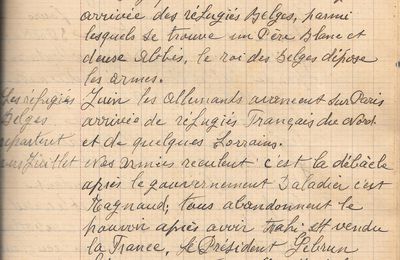 arrivée des réfugiés Belges, parmi
lesquels se trouve un Père Blanc et
deux Abbés, le roi des Belges dépose
les armes.
Les réfugiés
Belges
repartent
en Juillet
Juin les Allemands avancent sur Paris
arrivée de réfugiés Français du Nord
et de quelques Lorrains.
Nos armées reculent c'est la débâcle
après le gouvernement Daladier c'est
Raynaud; tous abandonnent le
pouvoir après avoir trahi et vendu
la France, le Président Lebrun